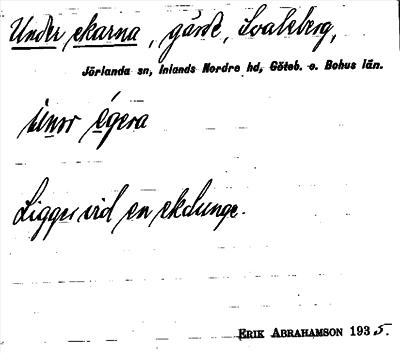 Under ekarna, gärde, Svaleberg,
Jörlanda sn, Inlands Nordre hd, Göteb. o. Bohus län.
ùnər é̱gəra
Ligger vid en ekdunge.
ERIK ABRAHAMSON 1935.